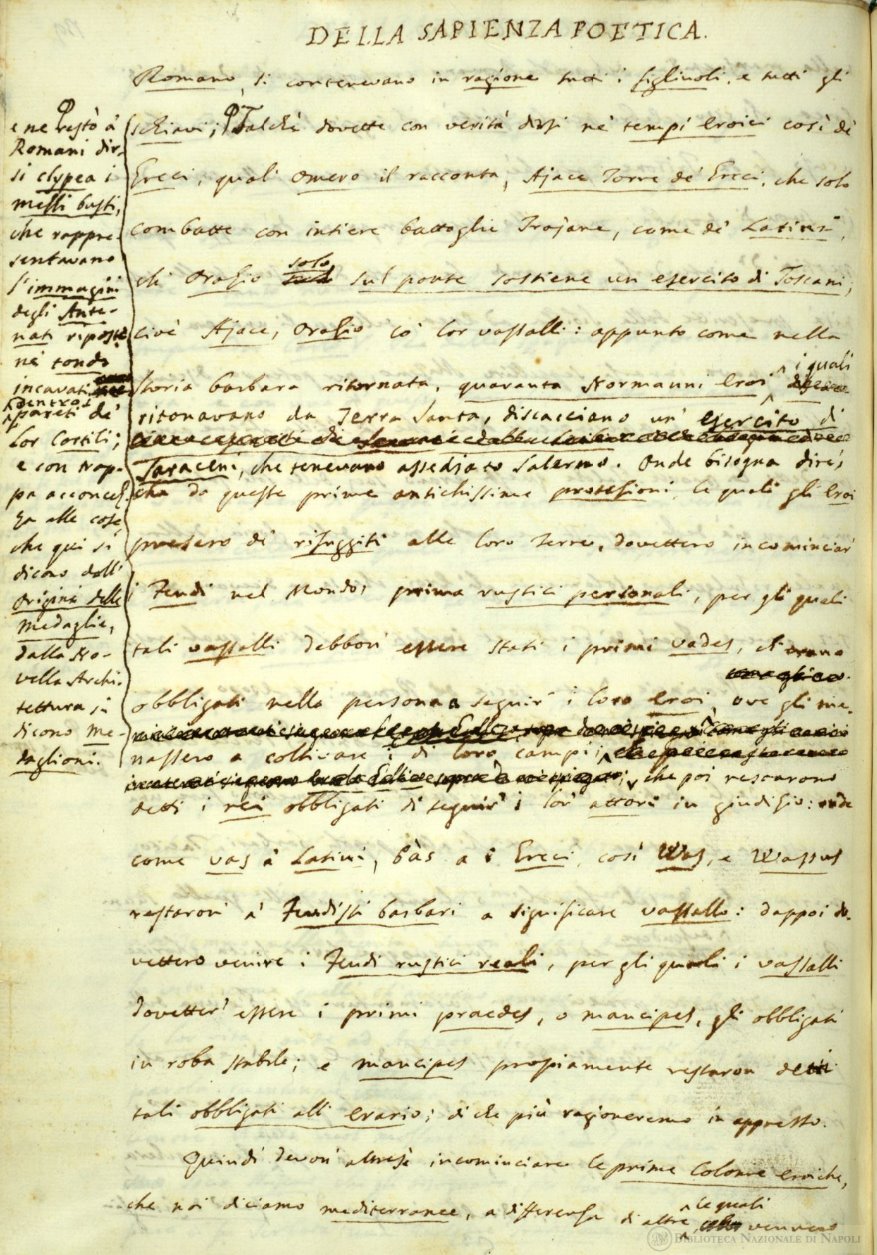 DELLA SAPIENZA POETICA.
Romano, si contenevano in ragione tutti i figliuoli, e tutti gli
schiavi; Talchè dovette con verità dirsi ne' tempi eroici così de'
Greci, quali Omero il racconta, Ajace Torre de' Greci, che solo
combatte con intiere battaglie Trojane, come de' Latini,
ch' Orazio solo sul ponte sostiene un esercito di Toscani;
cioè Ajace, Orazio co' lor vassalli: appunto come nella
storia barbara ritornata, quaranta Normanni eroi i quali
ritonavano da Terra Santa, discacciano un' esercito di
Saraceni, che tenevano assediato Salerno. Onde bisogna dire,
che da queste prime antichissime protezioni, le quali gli Eroi
presero di rifuggiti alle loro terre, dovettero incominciar'
i Feudi nel Mondo, prima rustici personali, per gli quali
tali vassalli debbon' essere stati i primi vades, ch' erano
obbligati nella persona a seguir' i loro eroi, ove gli me-
nassero a coltivare i di loro campi; che poi restarono
detti i rei obbligati di seguir' i lor' attori in giudizio: onde
come vas a' Latini, bàs a i Greci, così Was, e Wassus
restaron' a' Feudisti barbari a significare vassallo: dappoi do-
vettero venire i Feudi rustici reali, per gli quali i vassalli
dovetter' essere i primi praedes, o mancipes, gli obbligati
in roba stabile; e mancipes propiamente restaron detti
tali obbligati all' erario; di che più ragioneremo in appresso.
Quindi devon' altresì incominciare le prime Colonie eroiche,
che noi diciamo mediterranee, a differenza di altre, le quali vennero
e ne restò a'
Romani dir-
si clypea i
messi busti,
che rappre-
sentavano
l' immagini
degli Ante-
nati riposte
ne' tondi
incavati
dentro le
pareti de'
lor Cortili;
e con trop-
pa acconcez-
za alle cose,
che qui si
dicono dell'
Origini delle
Medaglie,
dalla No-
vella Archi-
tettura si
dicono Me-
daglioni.
BIBLIOTECA NAZIONALE DI NAPOLI